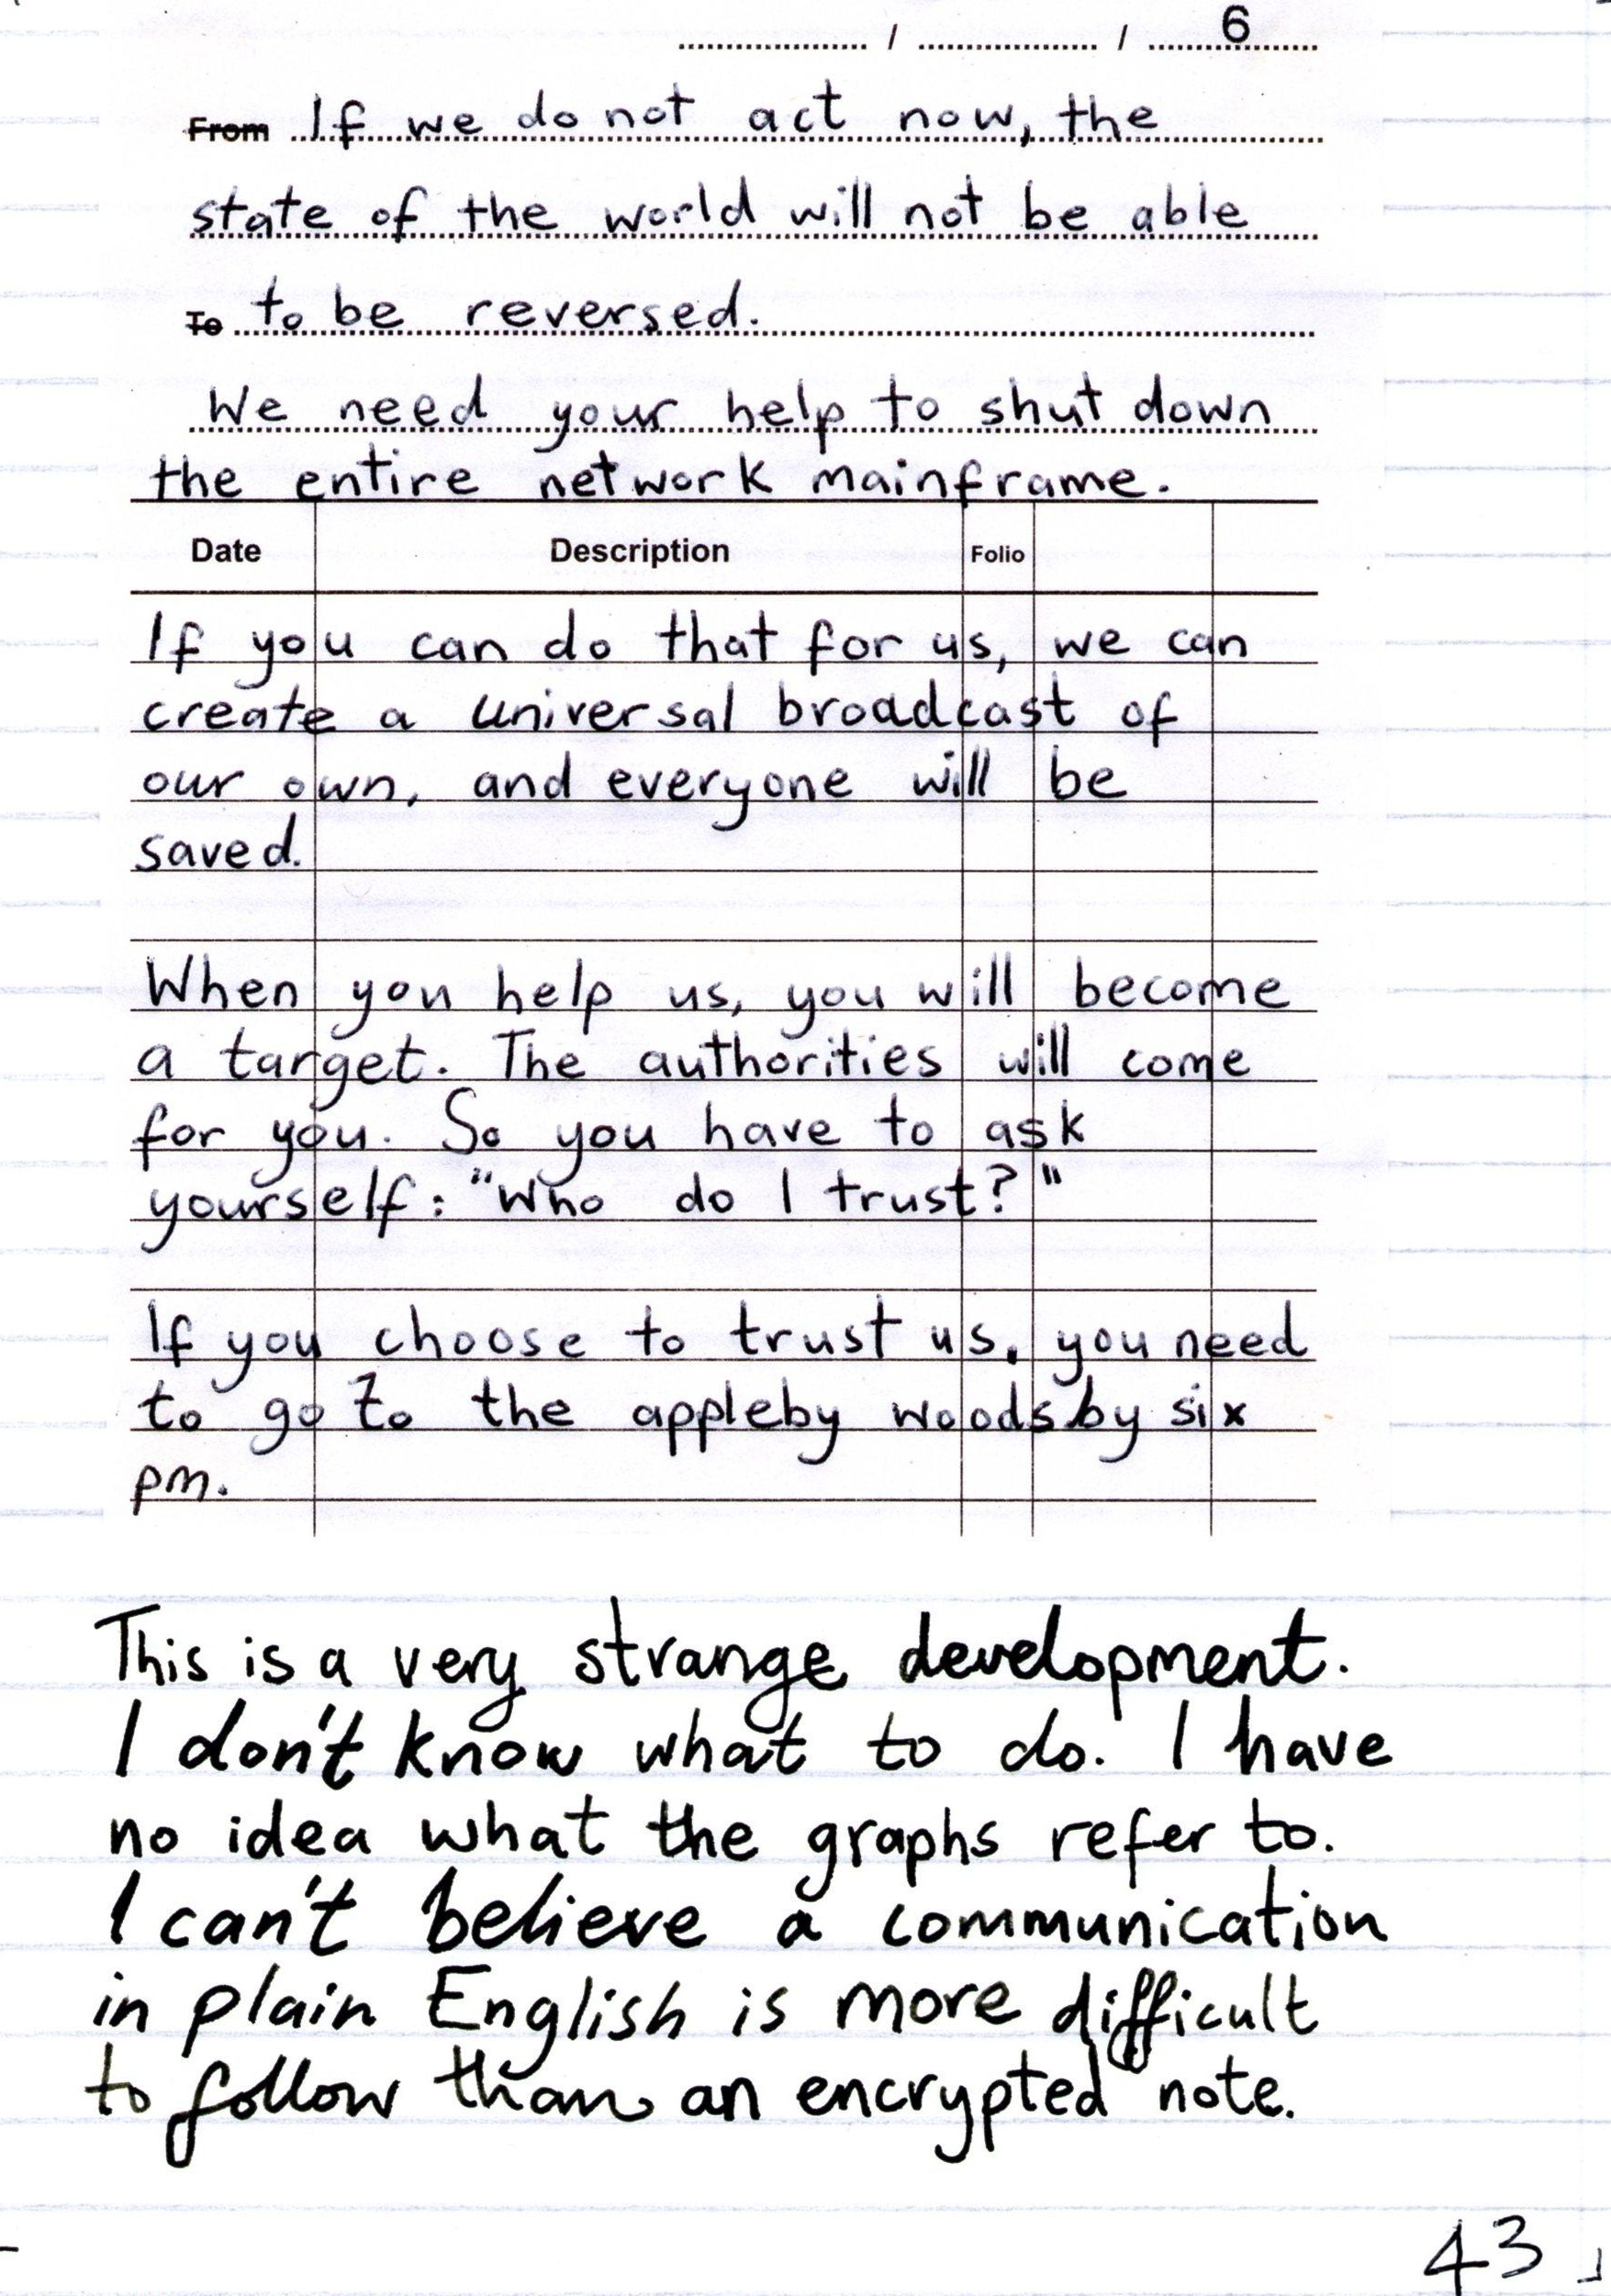 / / 6
From If we do not act now, the
state of the world will not be able
To to be reversed.
We need your help to shut down
the entire network mainframe.
Date Description Folio
If you can do that for us, we can
create a universal broadcast of
our own, and everyone will be
saved.
When you help us, you will become
a target. The authorities will come
for you. So you have to ask
yourself: "Who do I trust?"
If you choose to trust us, you need
to go to the appleby woods by six
pm.
This is a very strange development.
I don't know what to do. I have
no idea what the graphs refer to.
I can't believe a communication
in plain English is more difficult
to follow than an encrypted note.
43